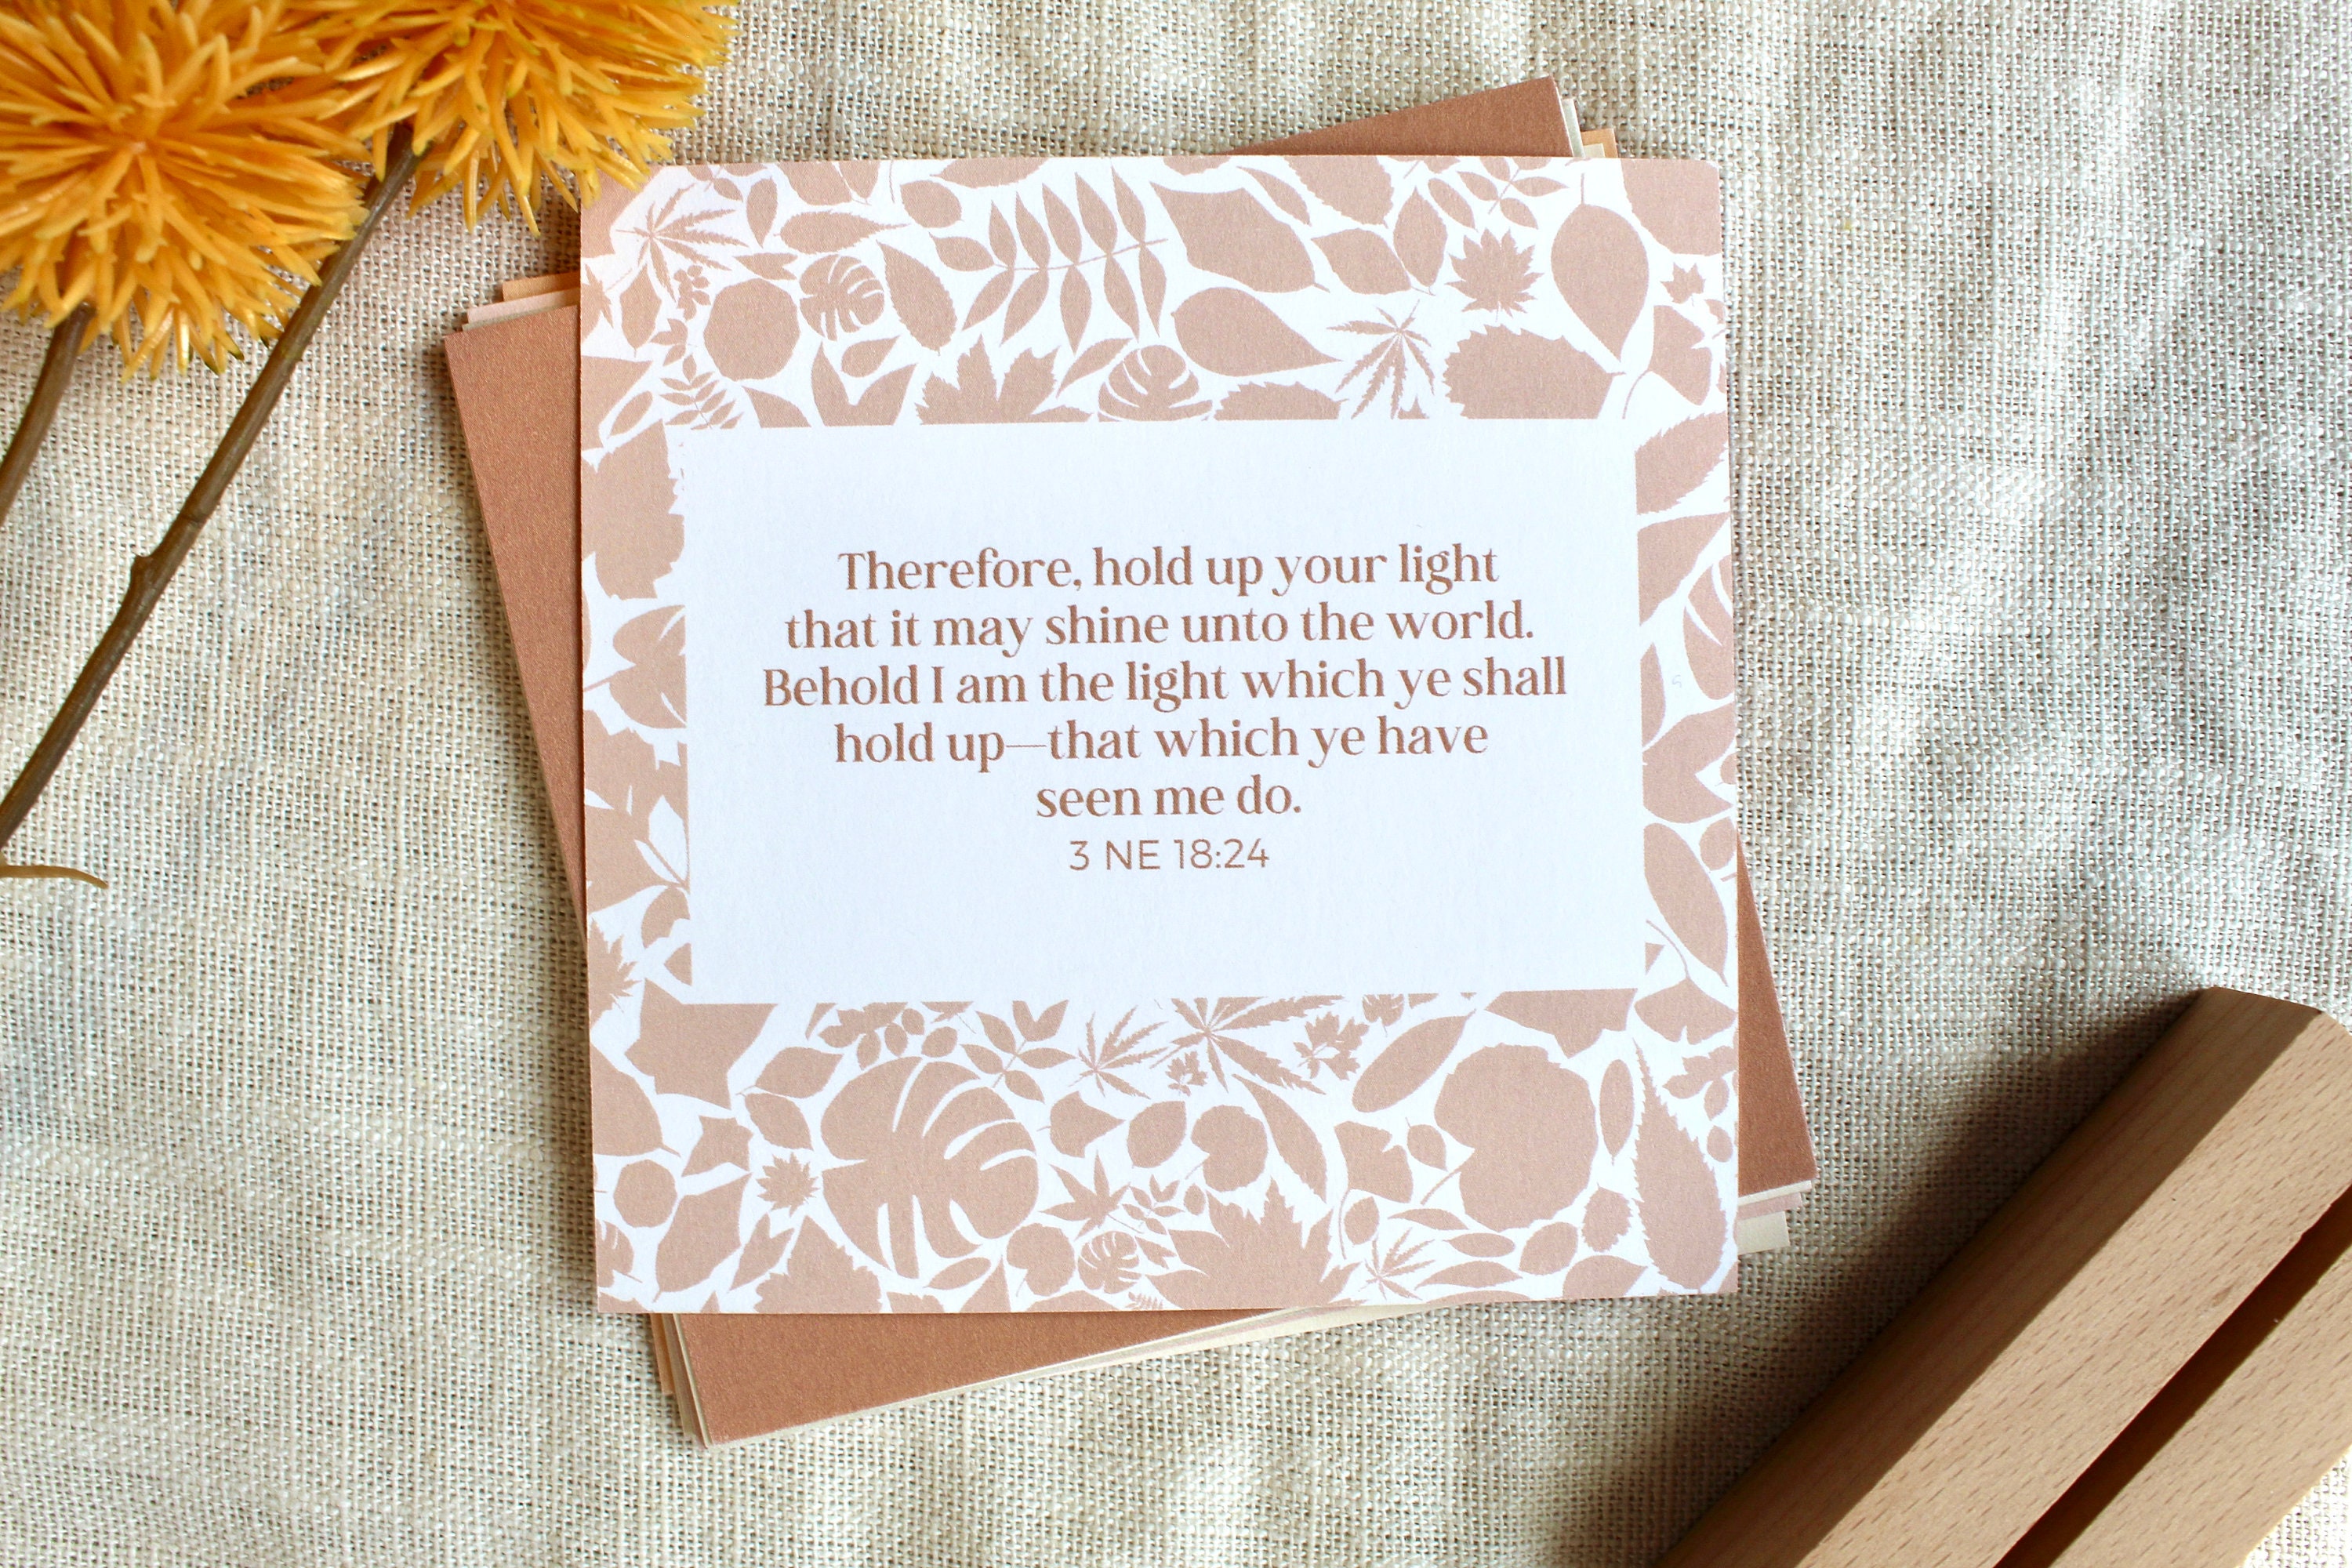 Therefore, hold up your light
that it may shine unto the world.
Behold I am the light which ye shall
hold up—that which ye have
seen me do.
3 NE 18:24